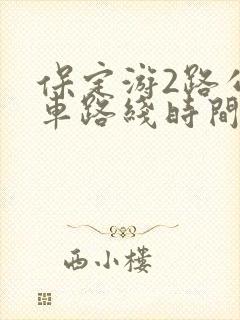 保定游2路公
車路綫時間
西小樓